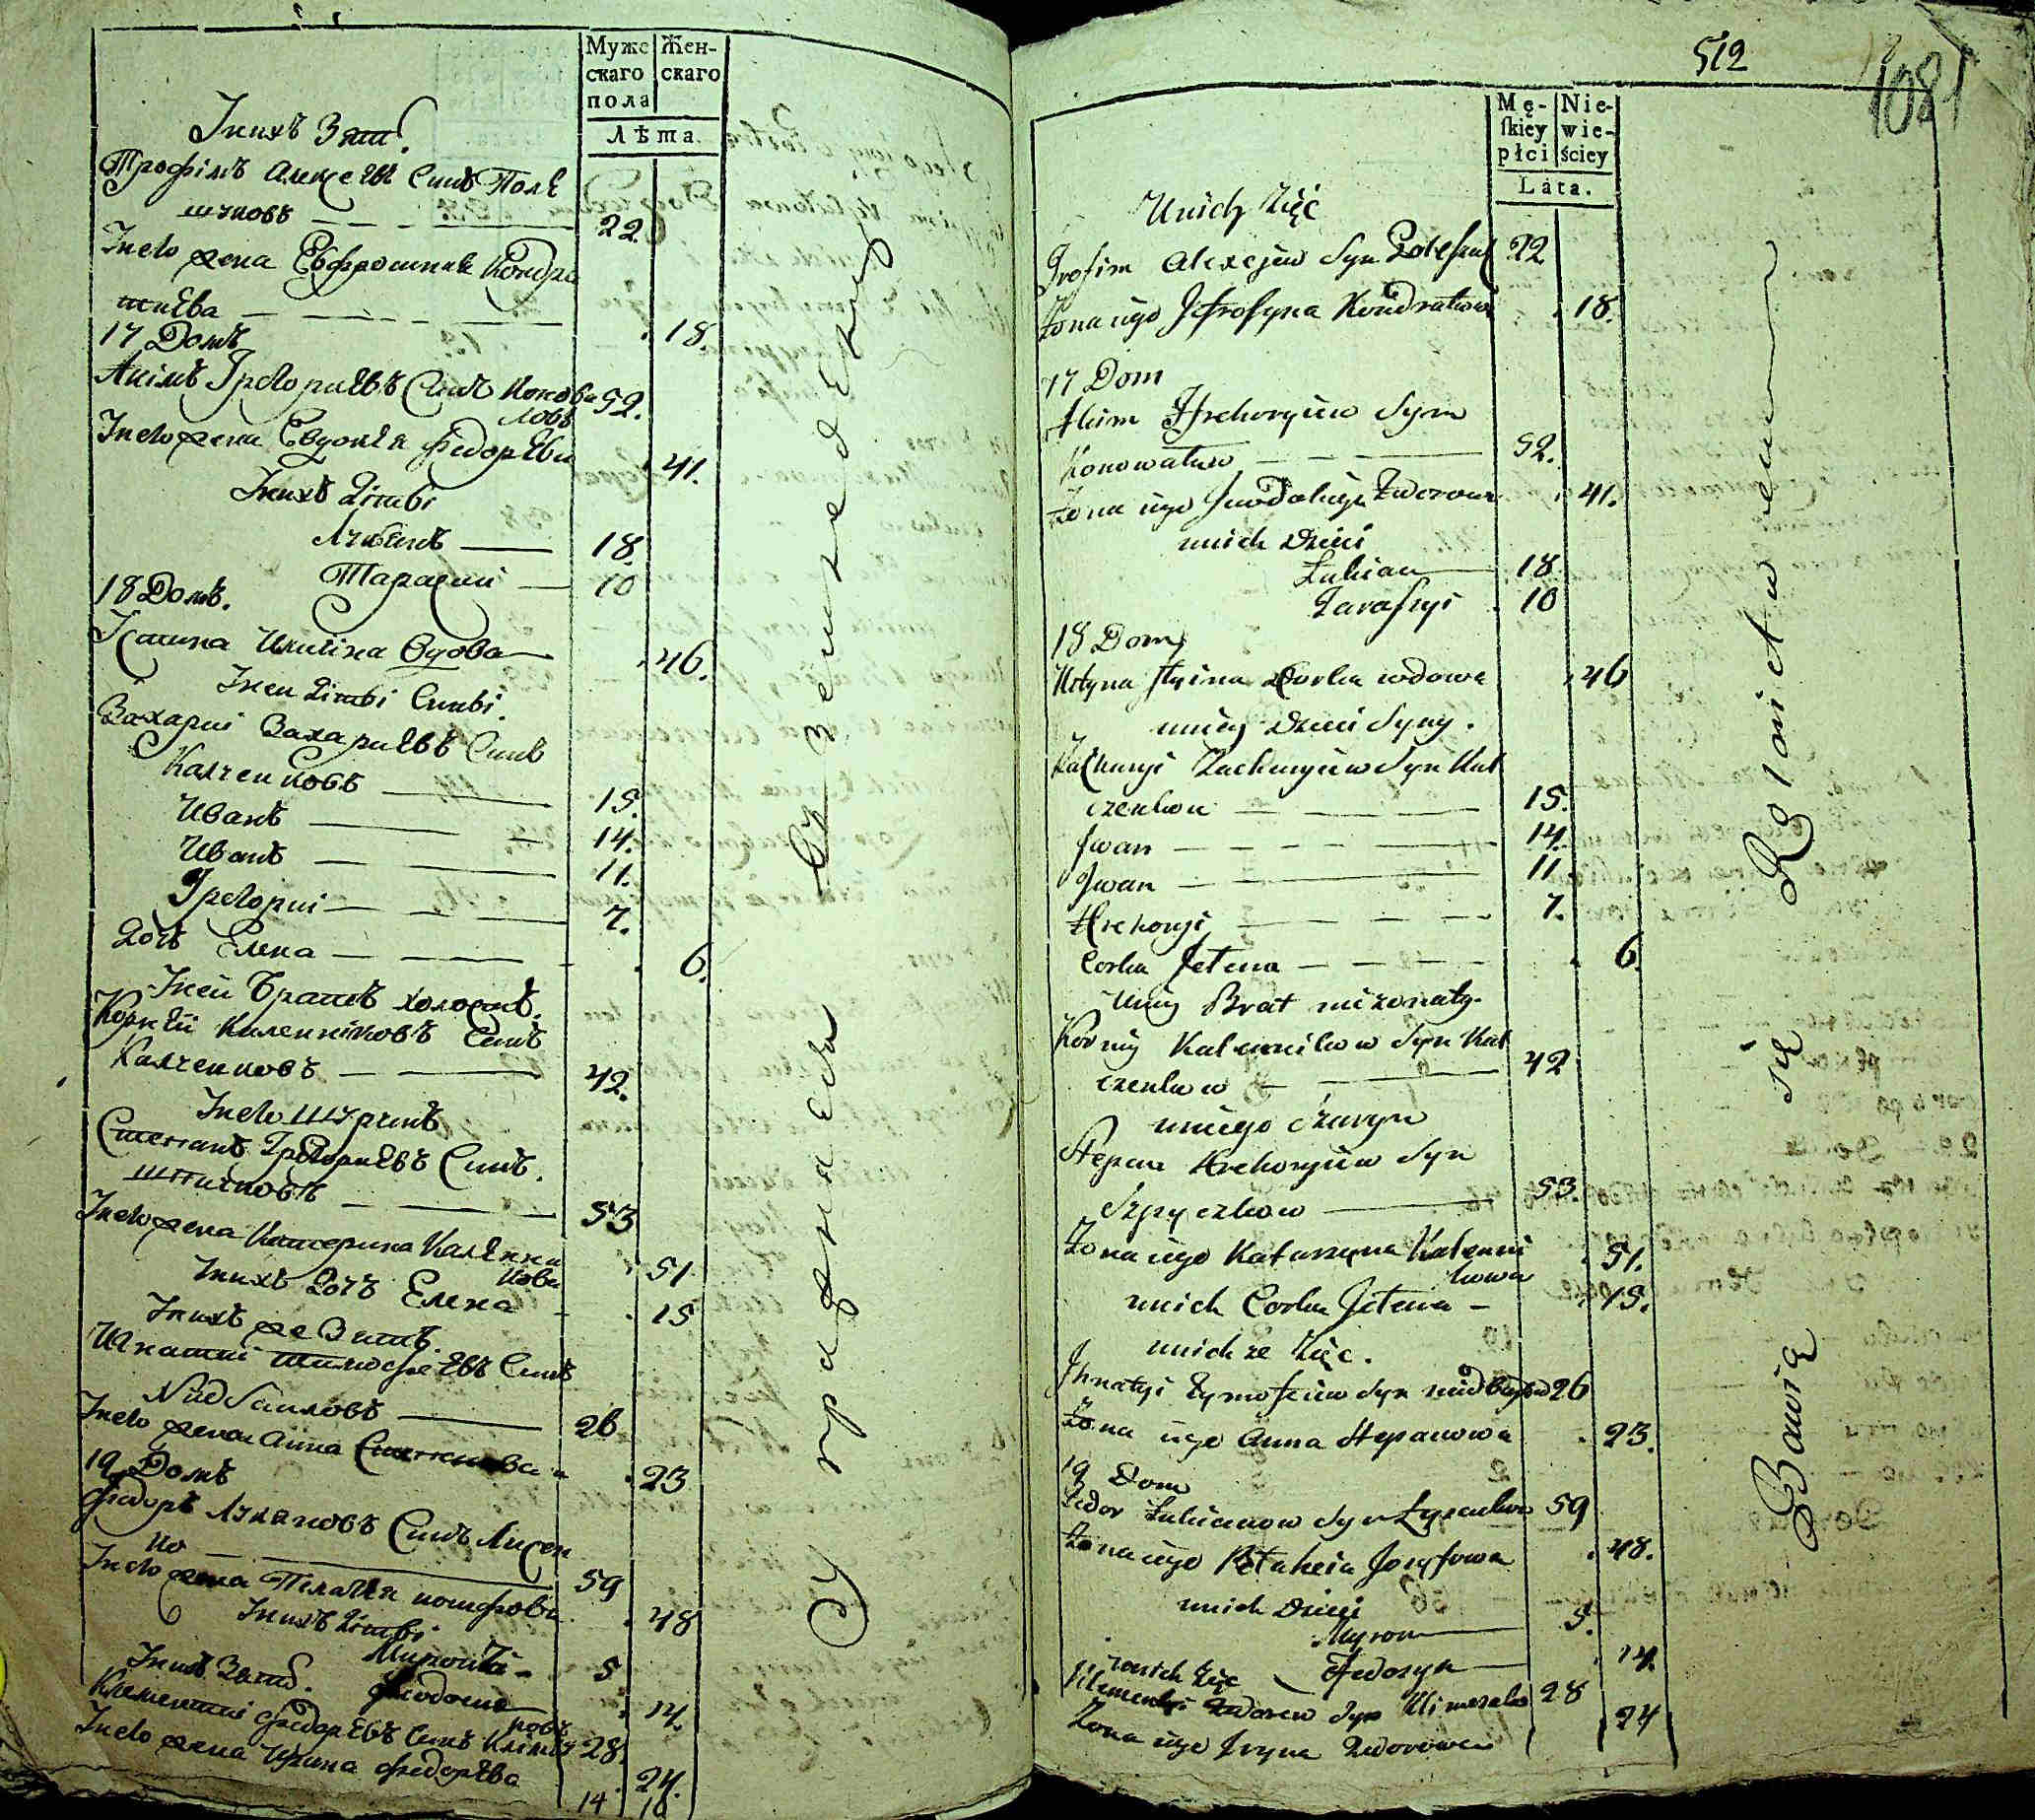 Муже
скаго
пола
Жен-
скаго
Лѣта.
Унихъ Зять.
Трофiмъ Алексѣевъ Синъ Поле
шуковъ 22.
Унего жена Евфросиния Кондра
тиева 18.
17 Домъ
Акiмъ Григориевъ Синъ Конова
ловъ 52.
Унего жена Евдокiя Федорѣва 41.
Унихъ Дѣти
Лукянъ 18.
Тарасий 10
18 Домъ.
Устина Илiiна Вдова 46.
Унеи Дѣти Сини.
Захарий Захариевъ Синъ
Калченковъ 15.
Иванъ 14.
Иванъ 11.
Григорий 7.
Дочъ Елена 6.
Унеи Братъ холостъ.
Корнѣй Каленниковъ Синъ
Калченковъ 42.
Унего Шуринъ
Степанъ Григориевъ Синъ.
53
Унего жена Катерина Каленни
кова 51
Унихъ Дочъ Елена 15
Унихъ же Зять.
Игнатий Тимофеевъ Синъ
26
Унего жена Анна Степанова 23
19 Домъ
Федоръ Лукяновъ Синъ Лисен
ко 59
Унего жена Пелагiя 48
Унихъ Дѣти
Миронъ 5
Феодосия 14.
Унихъ Зять.
Климентий Федорѣвъ Синъ 28.
Унего жена Ирина Федорѣва 24.
14 10
512
1081
Mę-
skiey
płci
Nie-
wie-
ściey
Lata.
Unich Zięć
Trofim Alexejew Syn 22
Żona iego Jefrosyna Kondratowa 18.
17 Dom
Akim Hrehoryiew Syn
Konowałow 52.
Żona iego Jewdokija Fedorowa 41.
unich Dzieci
Łukian 18
Tarasyi 10
18 Dom
Ustyna Corka wdowa 46
uniey Dzieci Syny.
Zacharyi Zacharyiew Syn Kal
czenkow 15.
Jwan 14.
Jwan 11
Hrehoryi 7.
Corka Jelena 6.
Uniey Brat nieżonaty.
Korniy Kalennikow Syn Kal
czenkow 42
uniego Szuryn
Stepan Hrehoryiew Syn
Szpyczkow 53.
Żona iego Katarzyna Kalenni
kowa 51.
unich Corka Jelena 15.
unich że Zięc.
Jhnatyi Tymofeiew Syn 26
Żona iego Anna Stepanowa 23.
19 Dom
Fedor Łukianow Syn Łysenko 59
Żona iego Pelaheia Josyfowa 48.
unich Dzieci
Myron 5.
Fedosya 14.
unich Zięc
Klementyi Fedorow Syn 28
Żona iego Iryna Fedorowa 24